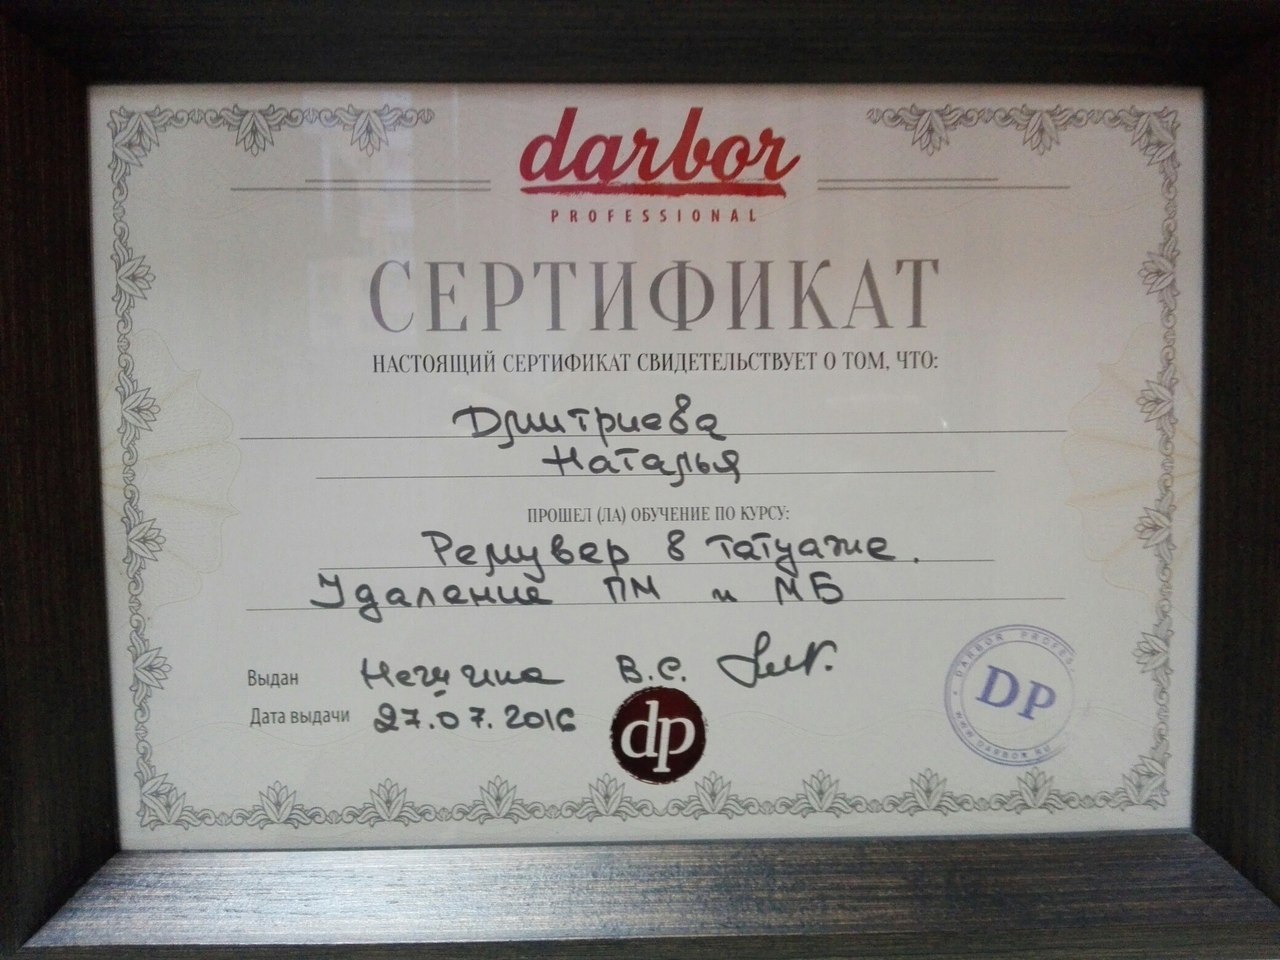 darbor
PROFESSIONAL
СЕРТИФИКАТ
НАСТОЯЩИЙ СЕРТИФИКАТ СВИДЕТЕЛЬСТВУЕТ О ТОМ, ЧТО:
Дмитриева
Наталья
ПРОШЕЛ (ЛА) ОБУЧЕНИЕ ПО КУРСУ:
Ремувер в татуаже.
Удаление ПМ и МБ
Выдан В.С.
Дата выдачи 27.07.2016
dp
DARBOR PROFES
DP
WWW.DARBOR.RU